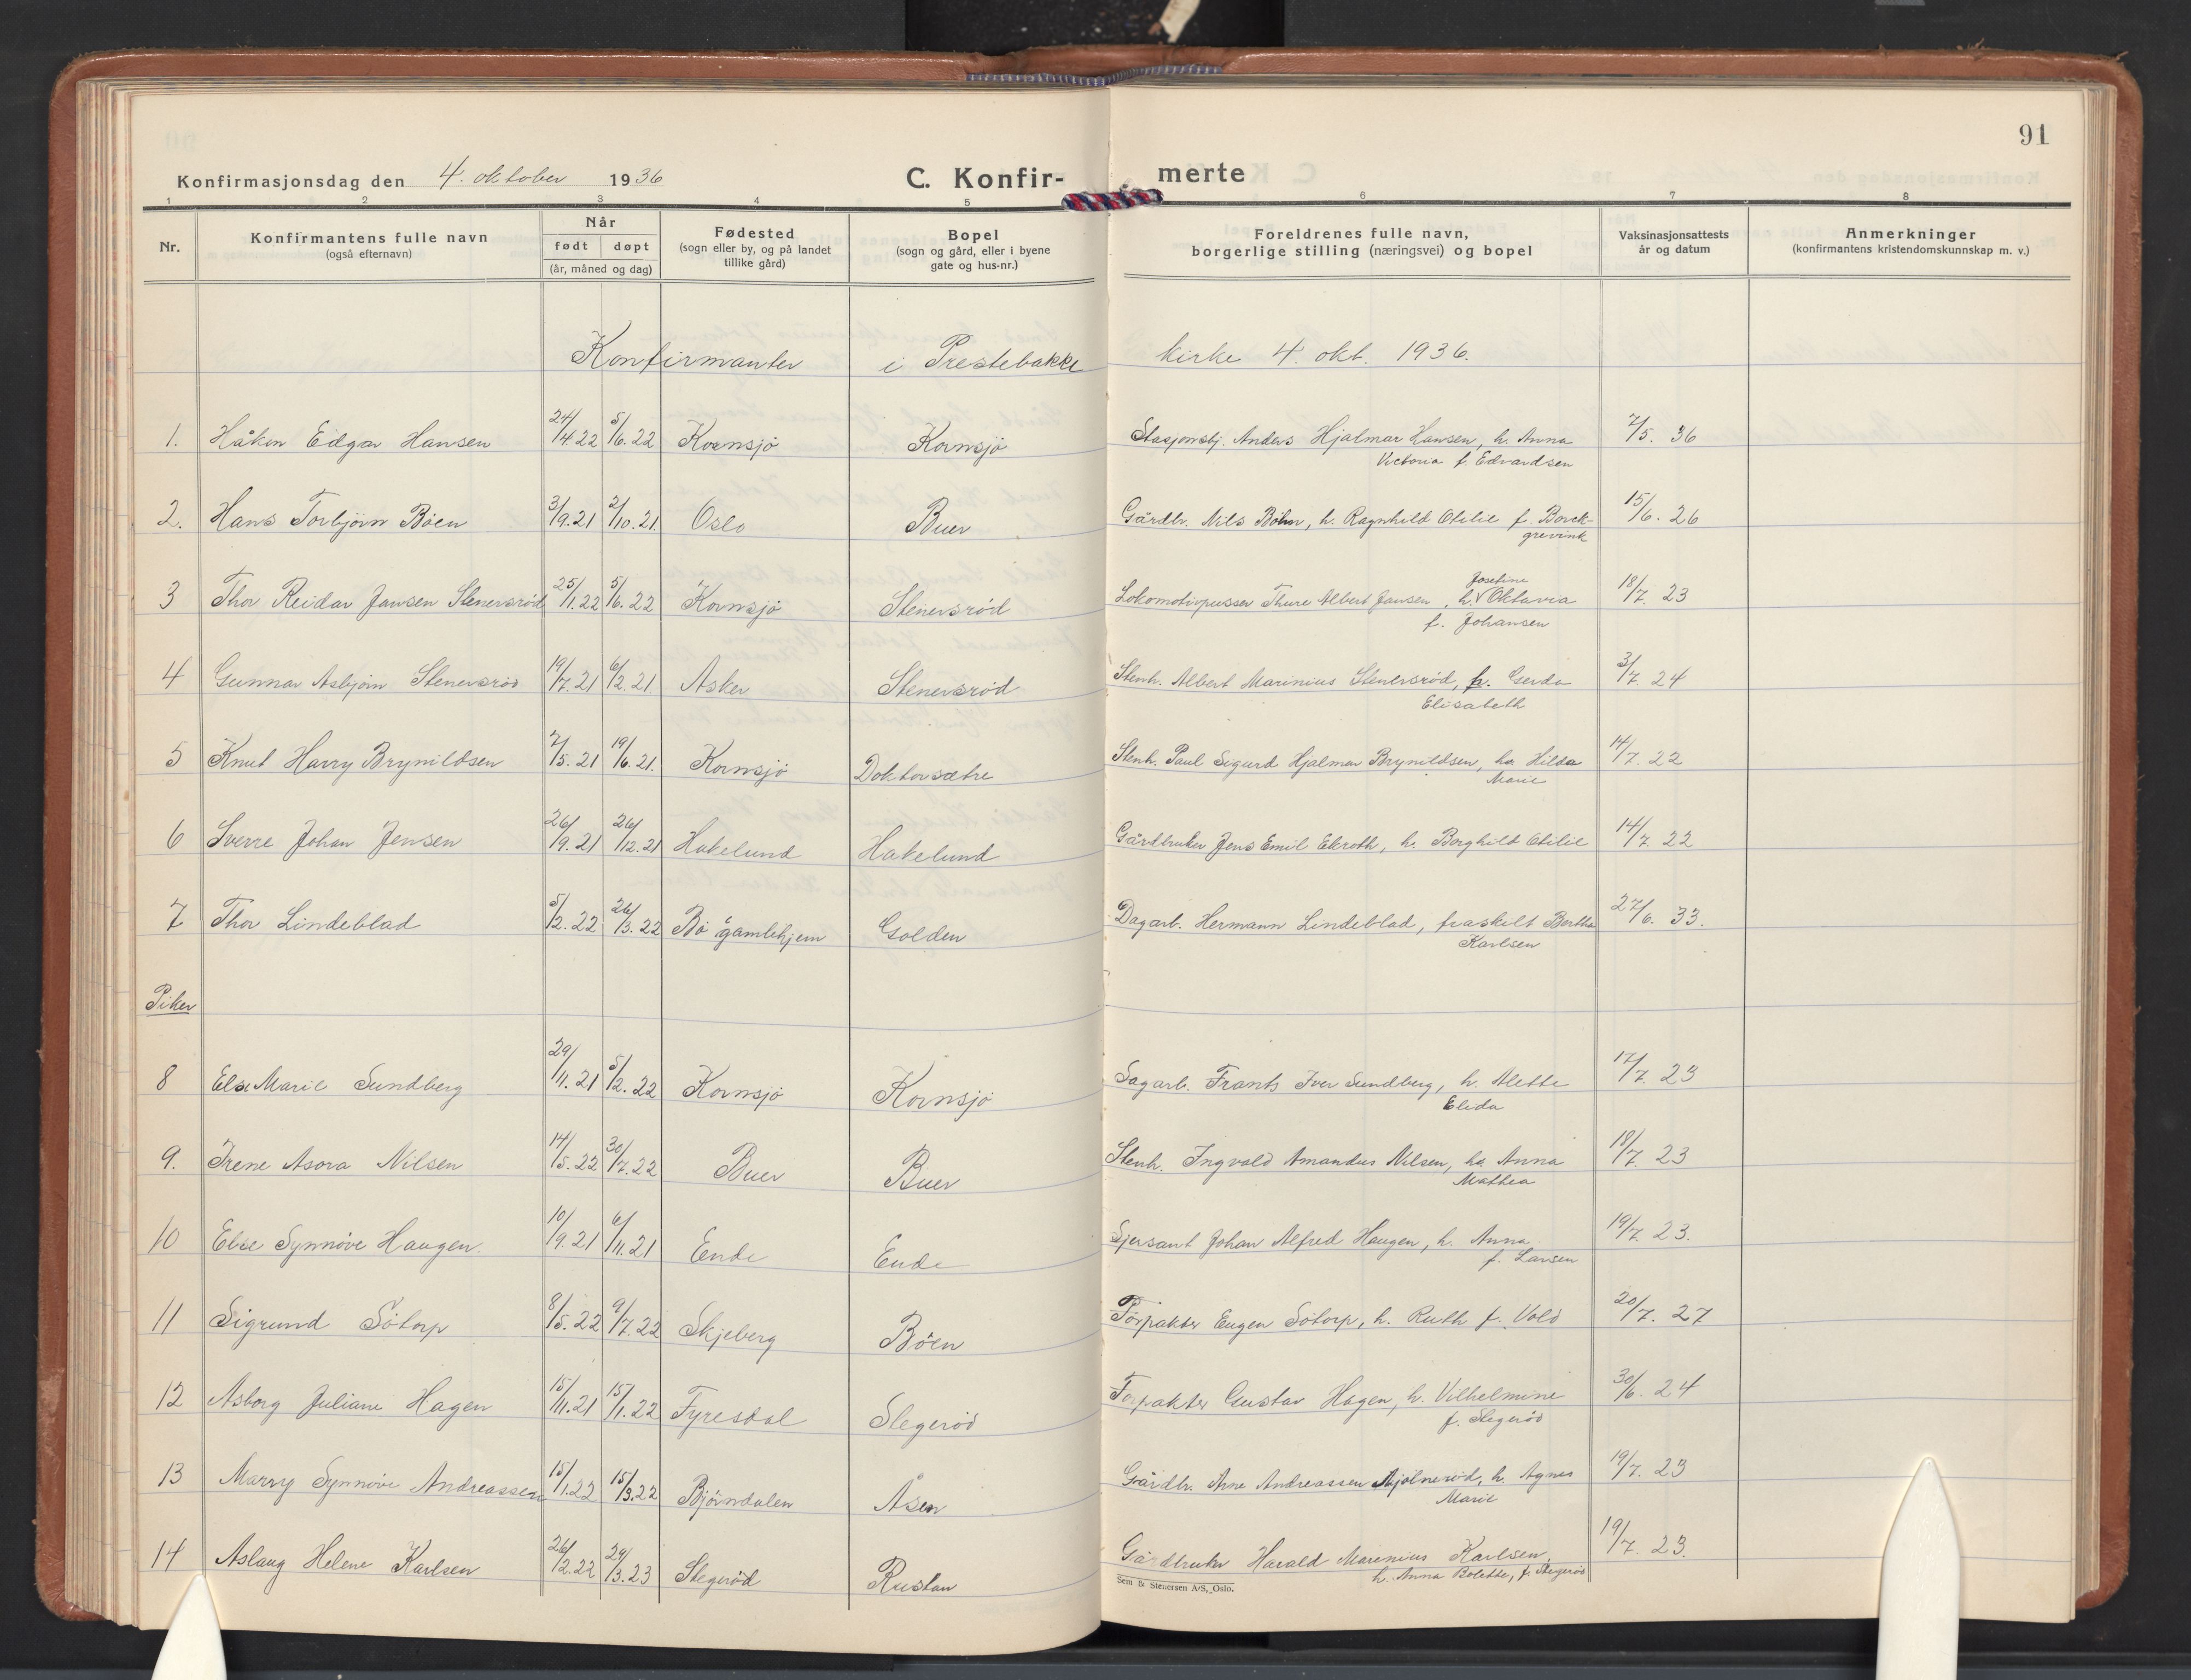 91
Konfirmasjonsdag den 4. oktober 1936 C. Konfir- merte
1 2 3 4 5 6 7 8
Nr. Konfirmantens fulle navn (også efternavn) Når født døpt (år, måned og dag) Fødested (sogn eller by, og på landet tillike gård) Bopel (sogn og gård, eller i byene gate og hus-nr.) Foreldrenes fulle navn, borgerlige stilling (næringsvei) og bopel Vaksinasjonsattests år og datum Anmerkninger (konfirmantens kristendomskunnskap m. v.)
Konfirmanter i Prestebakke kirke 4. okt. 1936.
1. Håkon Edgar Hansen 24/4.22 5/6.22 Kornsjø Kornsjø Stasjonsbj. Anders Hjalmar Hansen, h. Anna 7/5. 36
Victoria f. Edvardsen
2. Hans Torbjörn Böen 3/9.21 2/10.21. Oslo Buer Gårdbr. Nils Böhn, h. Ragnhild Otilie f. Borch- 15/6. 26
grevink
3 Thor Reidar Jansen Stenersröd 25/1.22 5/6.22 Kornsjø Stenersröd Lokomotivpusser Thure Albert Jansen, h. Josefine Oktavia 18/7. 23
f. Johansen
4 Gunnar Asbjörn Stenersröd 19/7.21 6/2.21 Asker Stenersröd Stenh. Albert Marinius Stenersröd, h. Gerda 3/7. 24
Elisabeth
5 Knut Harry Brynildsen 7/5.21 19/6.21. Kornsjø Doktorsætre Stenh. Paul Sigurd Hjalmar Brynildsen, ha Hilda 14/7. 22
Marie
6 Sverre Johan Jensen 26/9.21 26/12.21 Hakelund Hakelund Gårdbruker Jens Emil Ekroth, h. Borghild Otilie 14/7. 22
7 Thor Lindeblad 5/2.22 26/3.22 Bö gamlehjem Golden Dagarb. Hermann Lindeblad, fraskilt Bertha 27/6. 33.
Karlsen
Piker
8 Else Marie Sundberg 29/11.21 5/2.22 Kornsjø Kornsjø Sagarb. Frants Iver Sundberg, h. Alette 17/7. 23
Elida
9. Irene Asora Nilsen 14/5.22 30/7.22 Buer Buer Stenh. Ingvald Amandus Nilsen, ha Anna 18/7. 23
Mathea
10 Else Synnöve Haugen. 10/9.21 6/11.21 Ende Ende Sjersant Johan Alfred Haugen, h. Anna 19/7. 23.
f. Larsen
11 Sigrund Sötorp 8/5.22 9/7.22 Skjeberg Böen Forpakter Eugen Sötorp, h. Ruth f. Vold 20/7. 27
12 Asborg Juliane Hagen 15/11.21 15/1.22 Fyresdal Slegeröd Forpakter Gustav Hagen, h. Vilhelmine 30/6. 24
f. Slegeröd
13 Marry Synnöve Andreassen 15/1.22 15/3.22 Björndalen Åsen Gårdbr. Arne Andreassen Mjölneröd, h. Agnes 19/7. 23
Marie
14 Aslaug Helene Karlsen 26/2.22 29/3.23 Slegeröd Rustan Gårdbruker Harald Marenius Karlsen, 19/7. 23.
h. Anna Bolette, f. Slegeröd
Sem & Stenersen A/S, Oslo.